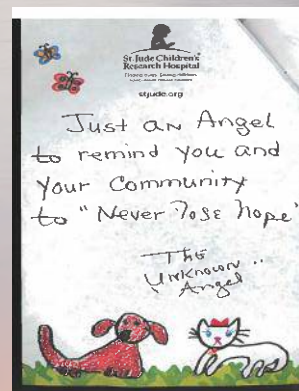 St. Jude Children's
Research Hospital
Finding cures. Saving children.
stjude.org
Just an Angel
to remind you and
your Community
to "Never lose hope"
The
Unknown ..
Angel